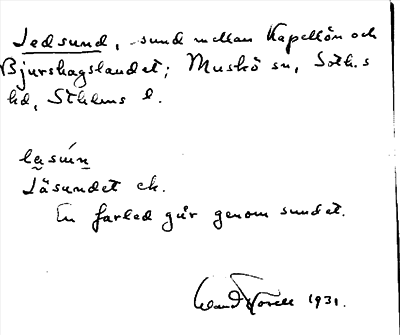 Ledsund, sund mellan Kapellön och
Bjurshagslandet; Muskö sn, Soth.s
hd, Sthlms l.
lẹsún
Läsundet ek.
En farled går genom sundet.
1931.